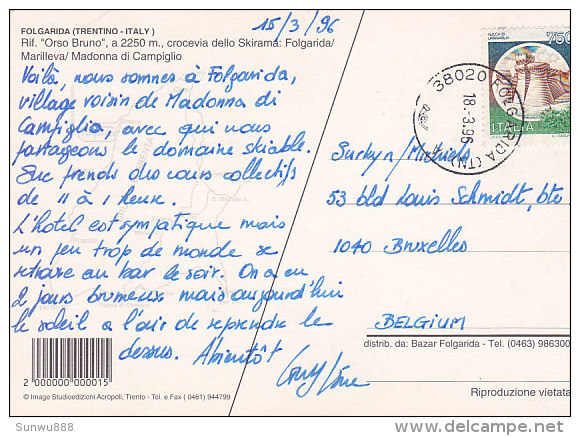 15/3/96
FOLGARIDA (TRENTINO - ITALY)
Rif. "Orso Bruno", a 2250 m., crocevia dello Skirama: Folgarida/
Marilleva/ Madonna di Campiglio
Voilà, nous sommes à Folgarida,
village voisin de Madonna di
Campiglio, avec qui nous
partageons le domaine skiable.
prends des cours collectifs
de 11 à 1 heure.
L'hotel est sympatique mais
un peu trop de monde se
retrouve au bar le soir. On a eu
2 jours brumeux mais aujourd'hui
le soleil a l'air de reprendre le
dessus. Abientôt
750
ITALIA
38020 FOLGARIDA (TN)
18.-3.96
Surkyn Michiels
53 bld Louis Schmidt, bte
1040 Bruxelles
BELGIUM
distrib. da: Bazar Folgarida - Tel. (0463) 986300
2 000000 000015
© Image Studioedizioni Acropoli, Trento - Tel. e Fax (0461) 944799
Riproduzione vietata
Sunwu888
delcampe.net